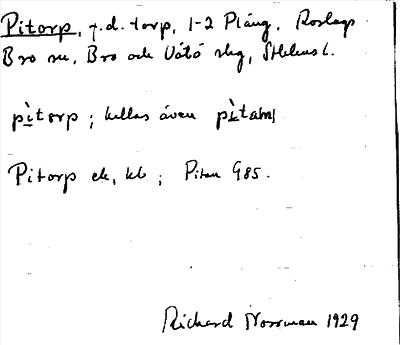 Pitorp, f.d. torp, 1-2 Pläng, Roslags
Bro sn, Bro och Vätö skg, Sthlms l.
pìtorp; kallas även pìtam
Pitorp ek, kb; Pitan G85.
Richard Norrman 1929